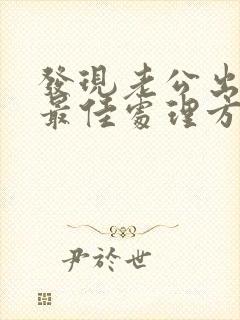 發現老公出
最佳處理方
尹於世